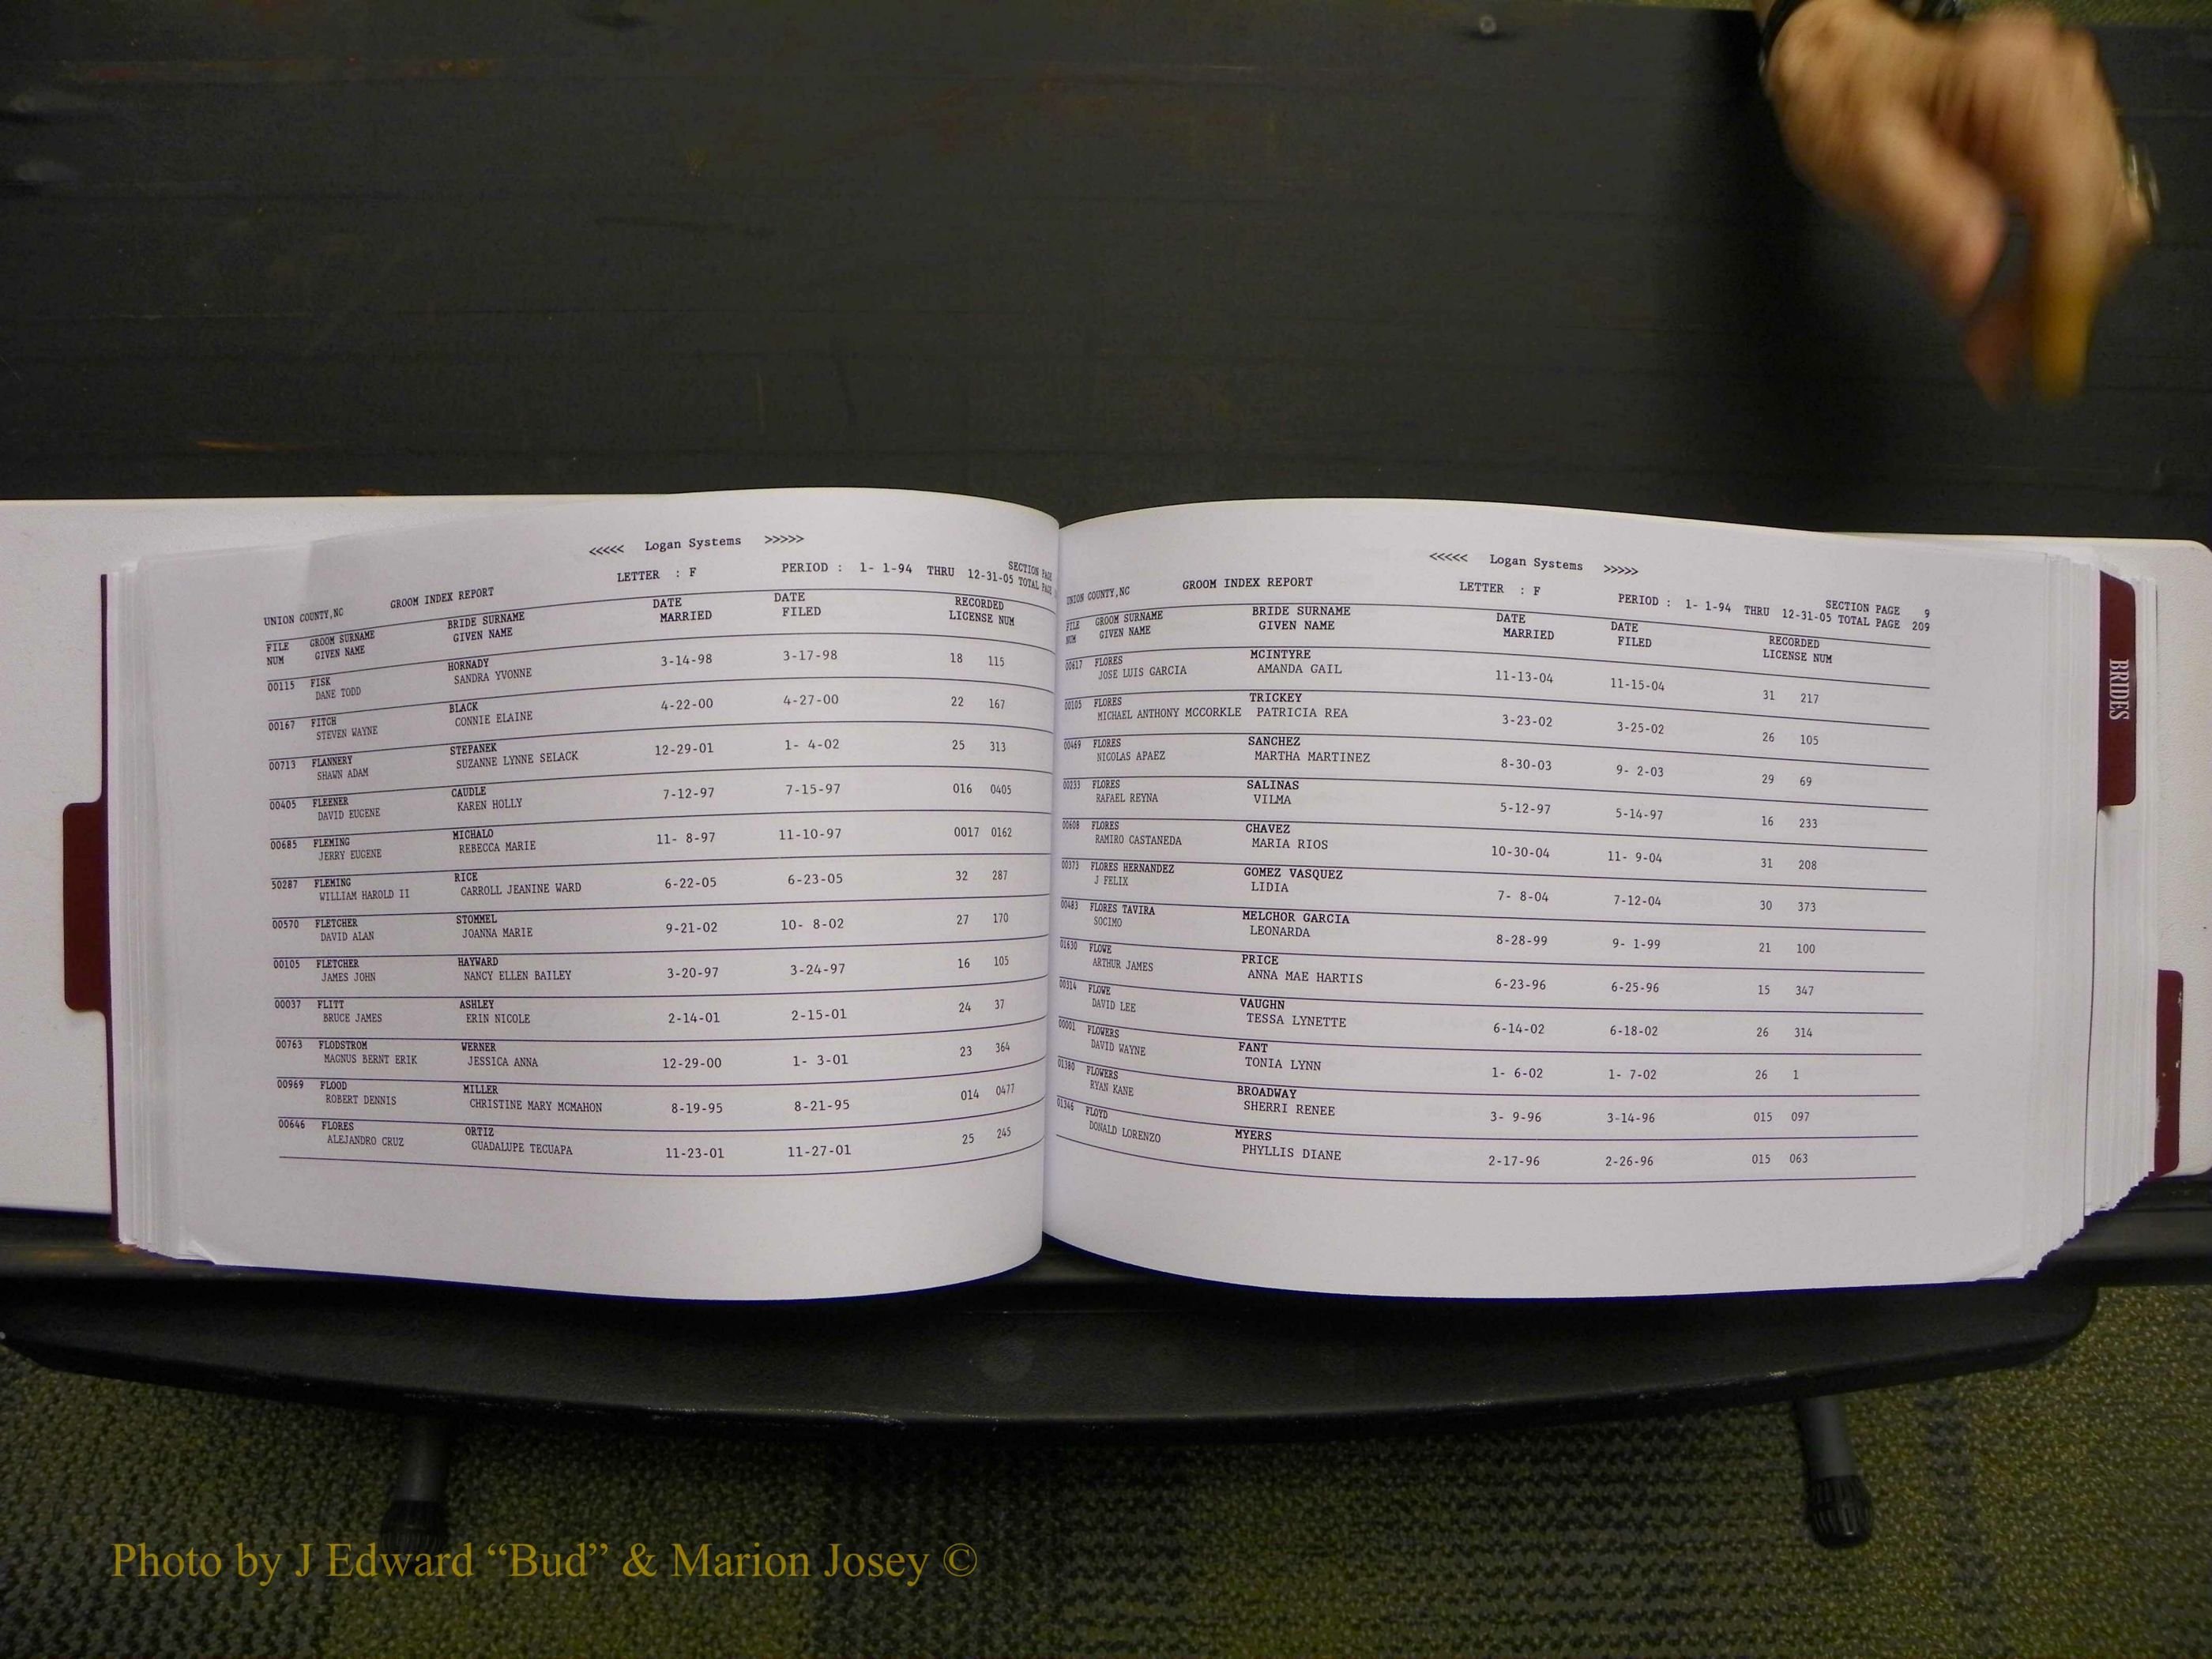 <<<<< Logan Systems >>>>>
UNION COUNTY,NC GROOM INDEX REPORT LETTER : F PERIOD : 1- 1-94 THRU 12-31-05 SECTION PAGE
TOTAL PAGE
FILE GROOM SURNAME BRIDE SURNAME DATE DATE RECORDED
NUM GIVEN NAME GIVEN NAME MARRIED FILED LICENSE NUM
00115 FISK HORNADY 3-14-98 3-17-98 18 115
DANE TODD SANDRA YVONNE
00167 FITCH BLACK 4-22-00 4-27-00 22 167
STEVEN WAYNE CONNIE ELAINE
00713 FLANNERY STEPANEK 12-29-01 1- 4-02 25 313
SHAWN ADAM SUZANNE LYNNE SELACK
00405 FLEENER CAUDLE 7-12-97 7-15-97 016 0405
DAVID EUGENE KAREN HOLLY
00685 FLEMING MICHALO 11- 8-97 11-10-97 0017 0162
JERRY EUGENE REBECCA MARIE
50287 FLEMING RICE 6-22-05 6-23-05 32 287
WILLIAM HAROLD II CARROLL JEANINE WARD
00570 FLETCHER STOMMEL 9-21-02 10- 8-02 27 170
DAVID ALAN JOANNA MARIE
00105 FLETCHER HAYWARD 3-20-97 3-24-97 16 105
JAMES JOHN NANCY ELLEN BAILEY
00037 FLITT ASHLEY 2-14-01 2-15-01 24 37
BRUCE JAMES ERIN NICOLE
00763 FLODSTROM WERNER 12-29-00 1- 3-01 23 364
MAGNUS BERNT ERIK JESSICA ANNA
00969 FLOOD MILLER 8-19-95 8-21-95 014 0477
ROBERT DENNIS CHRISTINE MARY MCMAHON
00646 FLORES ORTIZ 11-23-01 11-27-01 25 245
ALEJANDRO CRUZ GUADALUPE TECUAPA
<<<<< Logan Systems >>>>>
UNION COUNTY,NC GROOM INDEX REPORT LETTER : F PERIOD : 1- 1-94 THRU 12-31-05 SECTION PAGE 9
TOTAL PAGE 209
FILE GROOM SURNAME BRIDE SURNAME DATE DATE RECORDED
NUM GIVEN NAME GIVEN NAME MARRIED FILED LICENSE NUM
00617 FLORES MCINTYRE 11-13-04 11-15-04 31 217
JOSE LUIS GARCIA AMANDA GAIL
00105 FLORES TRICKEY 3-23-02 3-25-02 26 105
MICHAEL ANTHONY MCCORKLE PATRICIA REA
00469 FLORES SANCHEZ 8-30-03 9- 2-03 29 69
NICOLAS APAEZ MARTHA MARTINEZ
00233 FLORES SALINAS 5-12-97 5-14-97 16 233
RAFAEL REYNA VILMA
00608 FLORES CHAVEZ 10-30-04 11- 9-04 31 208
RAMIRO CASTANEDA MARIA RIOS
00373 FLORES HERNANDEZ GOMEZ VASQUEZ 7- 8-04 7-12-04 30 373
J FELIX LIDIA
00483 FLORES TAVIRA MELCHOR GARCIA 8-28-99 9- 1-99 21 100
SOCIMO LEONARDA
01630 FLOWE PRICE 6-23-96 6-25-96 15 347
ARTHUR JAMES ANNA MAE HARTIS
00314 FLOWE VAUGHN 6-14-02 6-18-02 26 314
DAVID LEE TESSA LYNETTE
00001 FLOWERS FANT 1- 6-02 1- 7-02 26 1
DAVID WAYNE TONIA LYNN
01380 FLOWERS BROADWAY 3- 9-96 3-14-96 015 097
RYAN KANE SHERRI RENEE
01346 FLOYD MYERS 2-17-96 2-26-96 015 063
DONALD LORENZO PHYLLIS DIANE
BRIDES
Photo by J Edward “Bud” & Marion Josey ©